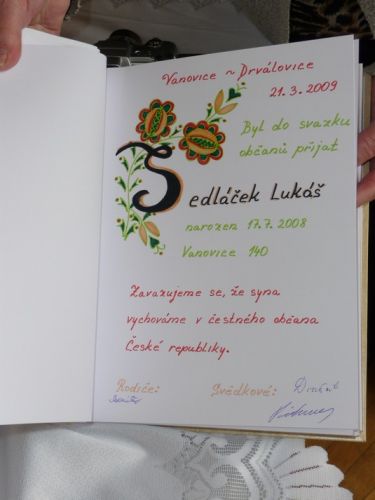 Vanovice ~ Drválovice
21.3.2009
Byl do svazku
občanů přijat
Sedláček Lukáš
narozen 17.7.2008
Vanovice 140
Zavazujeme se, že syna
vychováme v čestného občana
České republiky.
Rodiče: Svědkové: